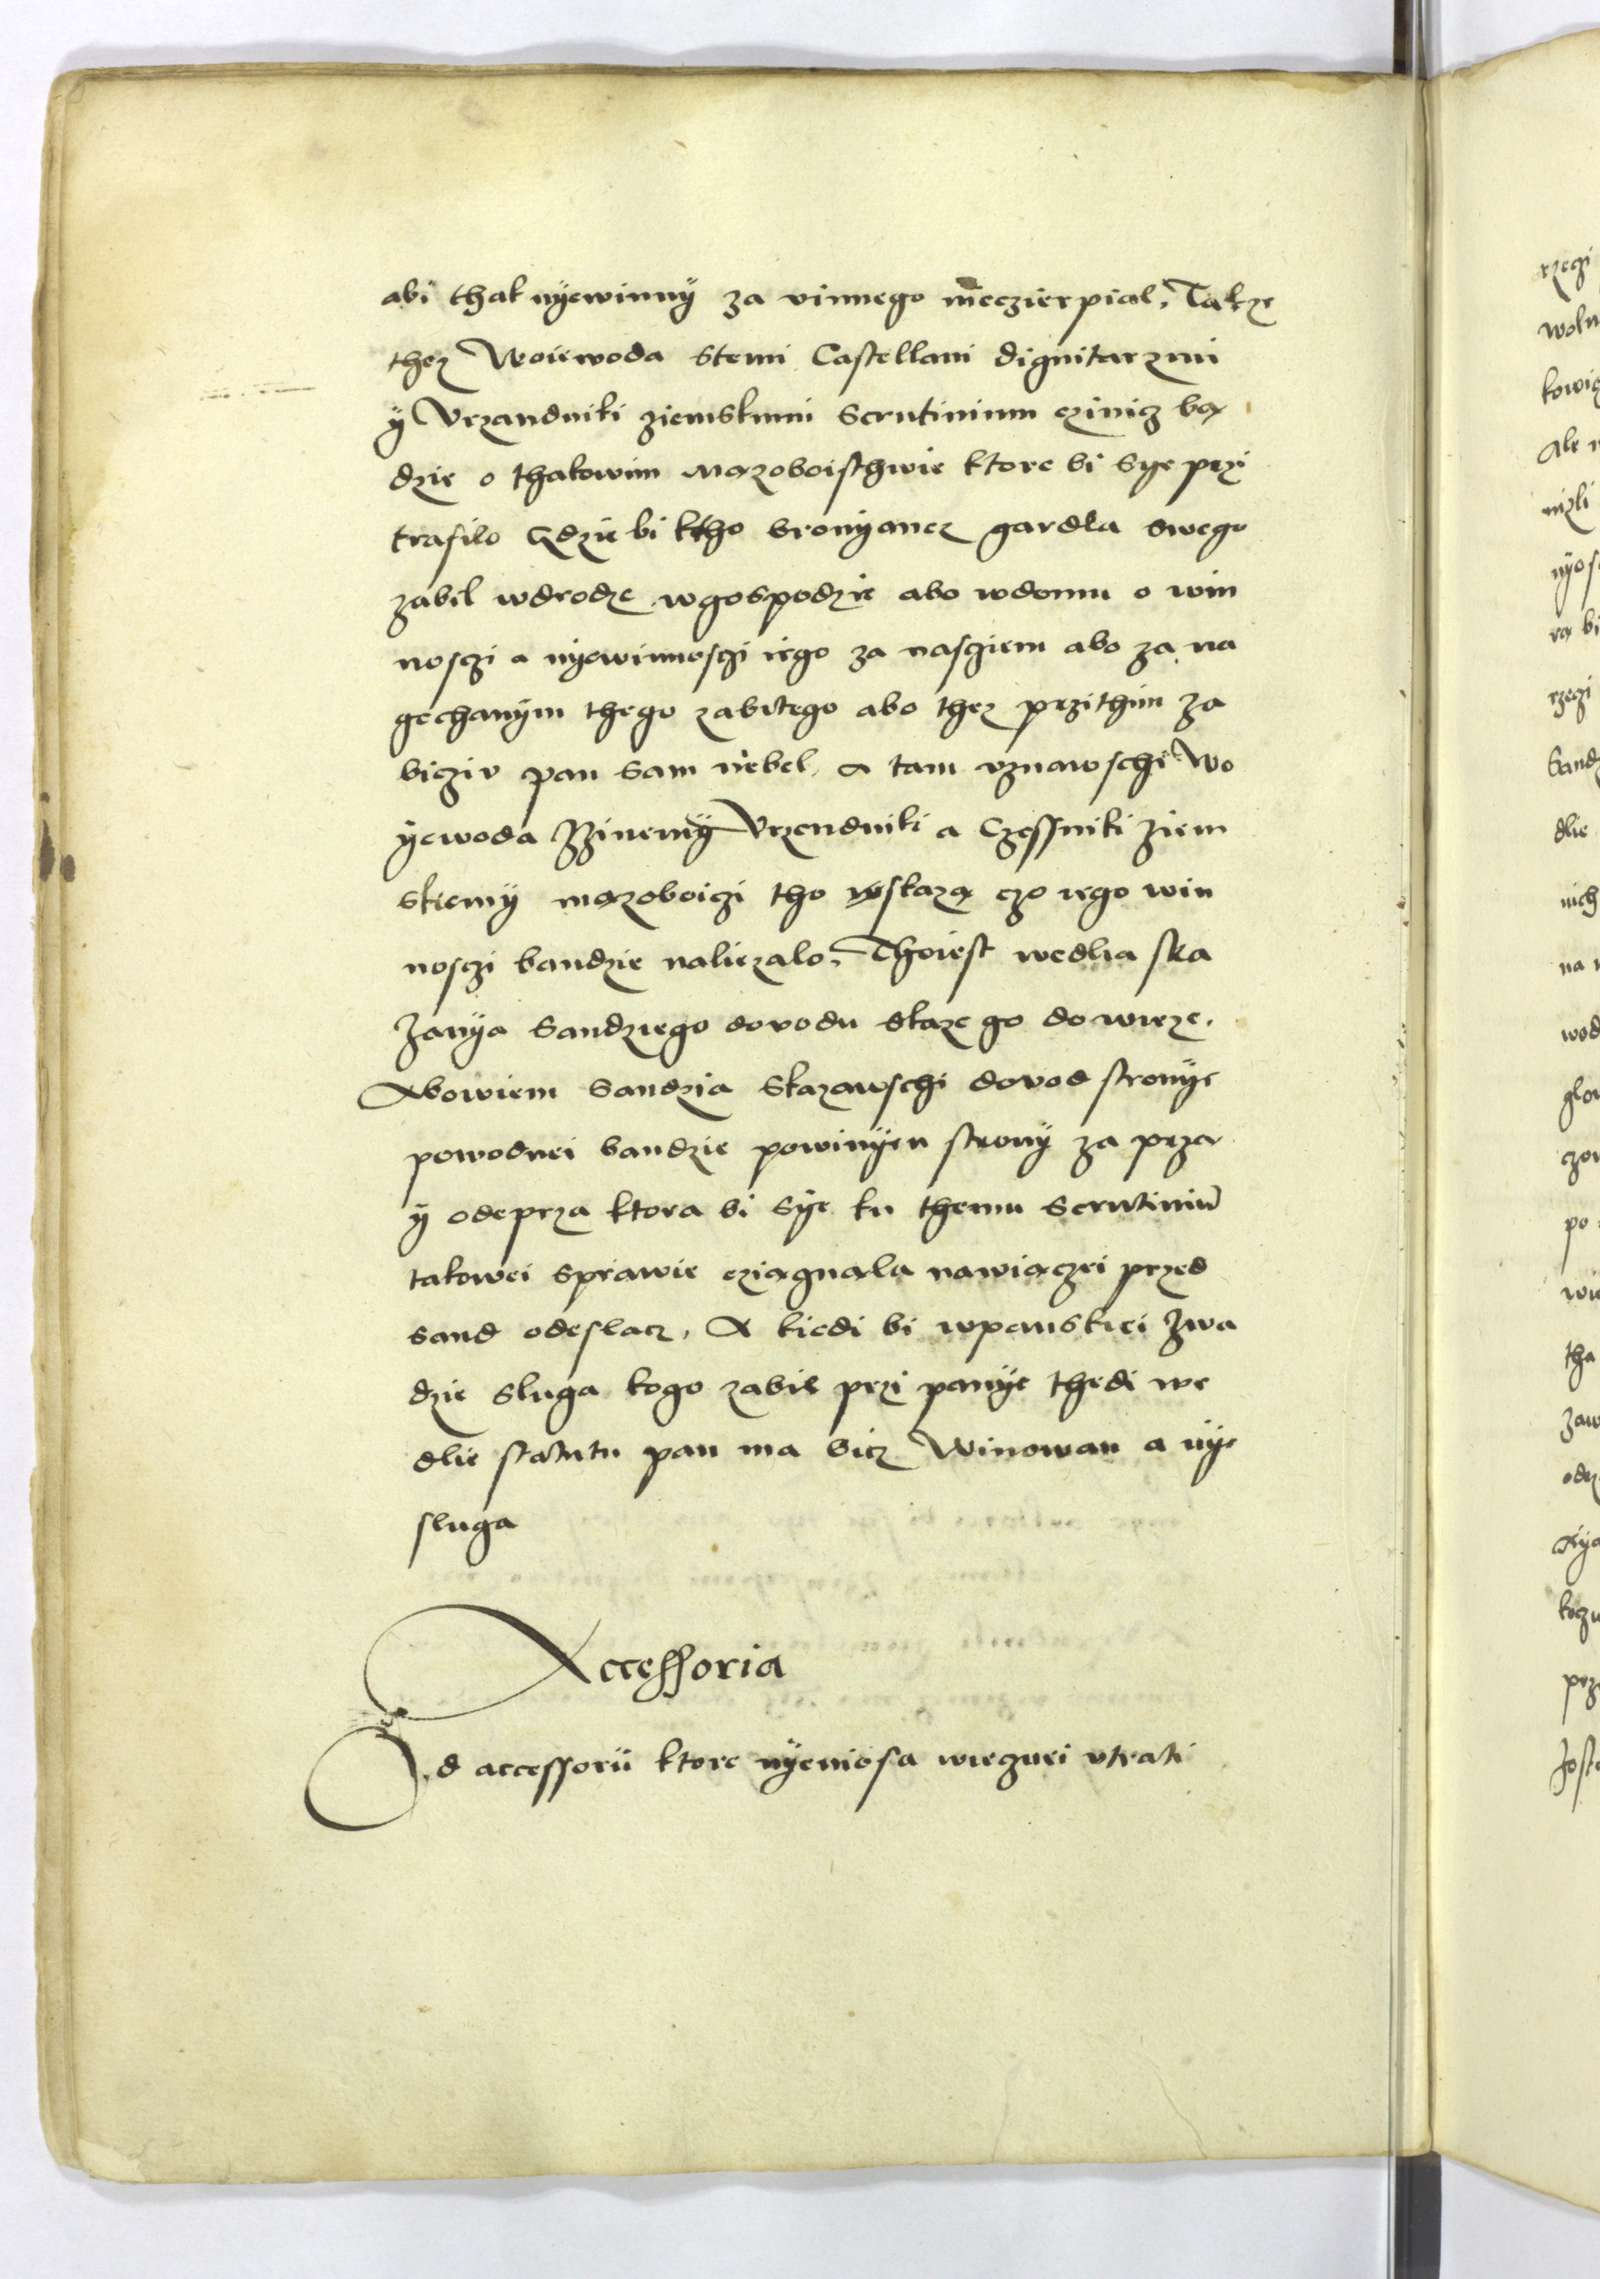 abi thak nyewinny za vinnego nieczierpial, Takze
thez Woiewoda stemi Castellani dignitarzmi
y Vrzandniki ziemskimi scrutinium czinicz bą
dzie o thakowim mązoboisthwie ktore bi sye przi
trafilo Gdzie bi ktho broniyancz gardla swego
zabil wdrodze wgospodzie abo wdomu o win
nosczi a nyewinnosczi iego za nascziem abo za na
gechanym thego zabitego abo thez przithim za
bicziv pan sam niebel, a tam vznawschi Wo
yewoda zzinemy Vrzendniki a Czessniki ziem
skiemy mązoboiczi tho wskazą czo iego win
nosczi bandzie naliezalo, Thoiest wedlia ska
zanya Sandziego dovodu skaze go do wieze.
Abowiem Sandzia skazawschi dovod stronye
powodnei bandzie powinyen strony za prza
y odeprza ktora bi sye ku themu scrutiniu
takowei sprawie cziągnala nawiączei przed
sand odeslacz, A kiedi bi wpanskiei zwa
dzie sluga kogo zabil przi panye thedi we
dlie statutu pan ma bicz Winowan a nye
sluga
Accessoria
Od accessorii ktore nyeniosa wiecznei vtrati